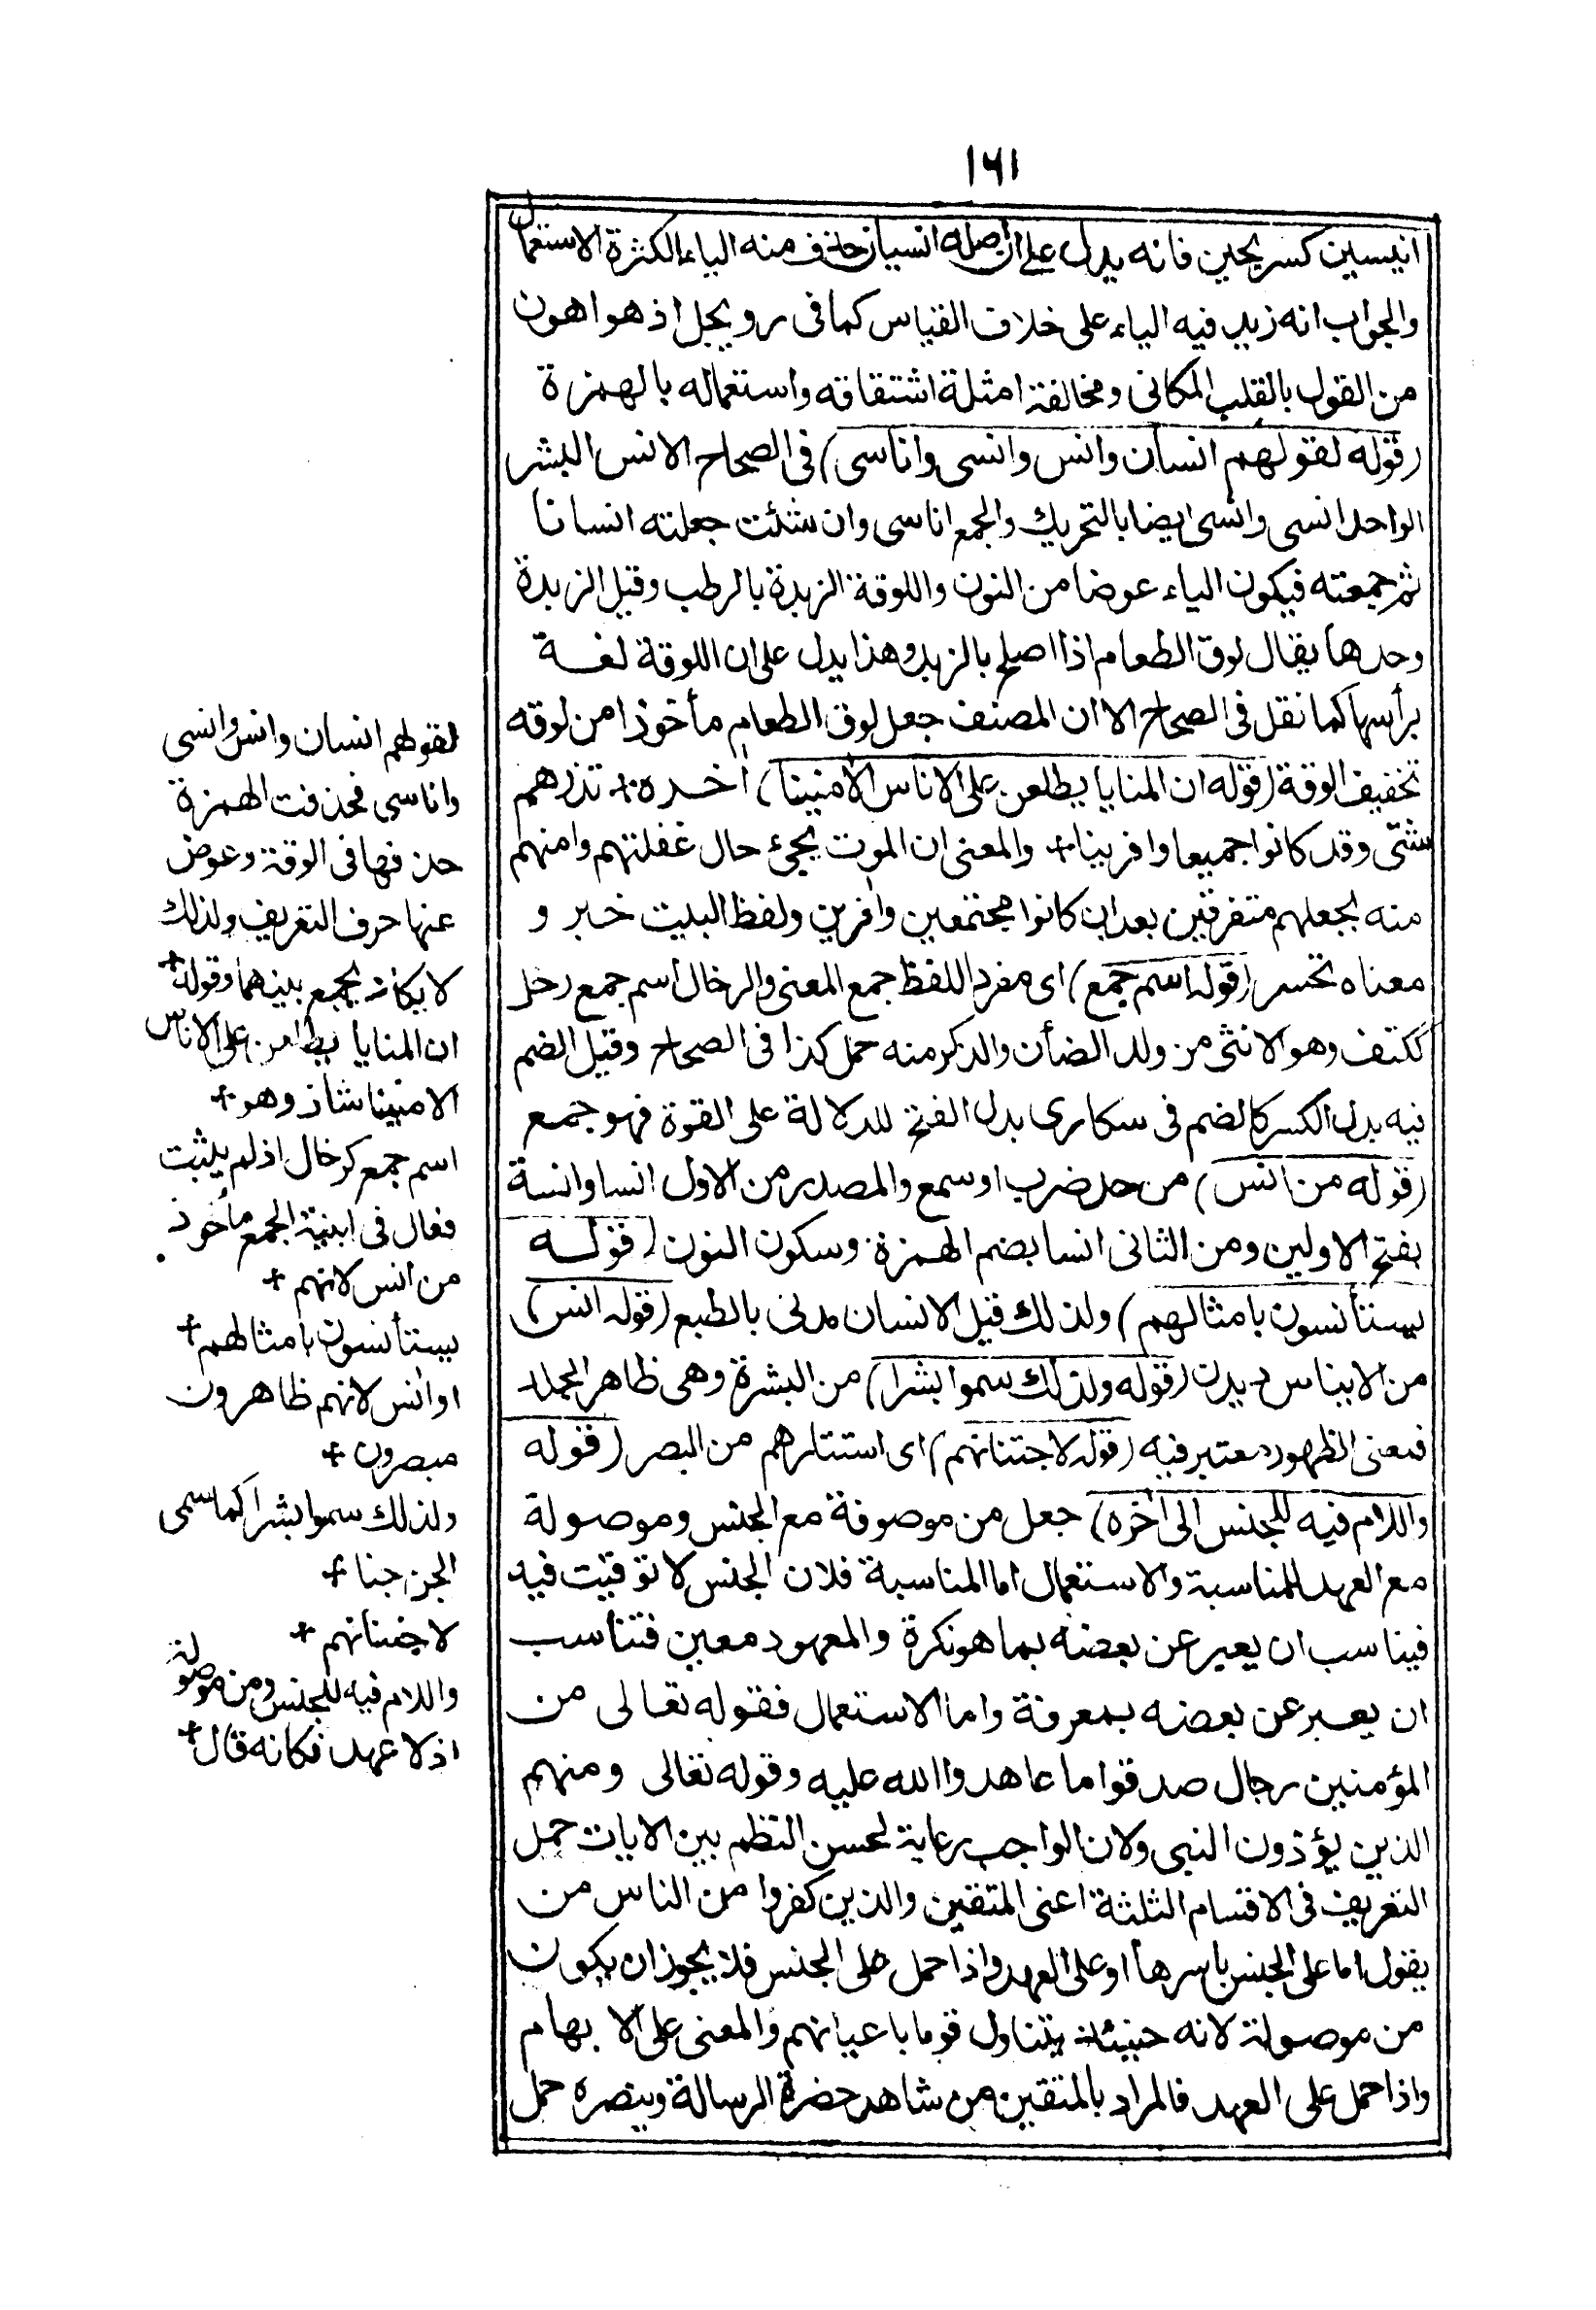 ١٦١
انيسين كسريحين فانه يدل على ان اصله انسيان حذف منه الياء لكثرة الاستعمال
والجواب انه زيد فيه الياء على خلاف القياس كما فى رويجل اذ هو اهون
من القول بالقلب المكانى ومخالفة امثلة اشتقاقه واستعماله بالهمزة
(قوله لقولهم انسان وانس وانسى واناسى) فى الصحاح الانس البشر
الواحد انسى وانسى ايضا بالتحريك والجمع اناسى وان شئت جعلته انسانا
ثم جمعته فيكون الياء عوضا من النون واللوقة الزبدة بالرطب وقيل الزبدة
وحدها يقال لوق الطعام اذا اصلح بالزبد وهذا يدل على ان اللوقة لغة
برأسها كما نقل فى الصحاح الا ان المصنف جعل لوق الطعام مأخوذا من لوقه
تخفيف الوقة (قوله ان المنايا يطلعن على الاناس الآمنينا) اخره + تذرهم
شتى وقد كانوا جميعا وافرينا + والمعنى ان الموت يجئ حال غفلتهم وامنهم
منه يجعلهم متفرقين بعد ان كانوا مجتمعين وافرين ولفظ البيت خبر و
معناه تحسر (قوله اسم جمع) اى مفرد اللفظ جمع المعنى والرخال اسم جمع رخل
ككتف وهو الانثى من ولد الضأن والذكر منه حمل كذا فى الصحاح وقيل الضم
فيه بدل الكسر كالضم فى سكارى بدل الفتح للدلالة على القوة فهو جمع
(قوله من انس) من حد ضرب او سمع والمصدر من الاول انسا وانسة
بفتح الاولين ومن الثانى انسا بضم الهمزة وسكون النون (قوله
يستأنسون بامثالهم) ولذلك قيل الانسان مدنى بالطبع (قوله انس)
من الايناس ديدن (قوله ولذلك سموا بشرا) من البشرة وهى ظاهر الجلد
فمعنى الظهور معتبر فيه (قوله لاجتنانهم) اى استتارهم من البصر (قوله
واللام فيه للجنس الى اخره) جعل من موصوفة مع الجنس وموصولة
مع العهد للمناسبة والاستعمال اما المناسبة فلان الجنس لا توقيت فيه
فيناسب ان يعبر عن بعضه بما هو نكرة والمعهود معين فتناسب
ان يعبر عن بعضه بمعرفة واما الاستعمال فقوله تعالى من
المؤمنين رجال صدقوا ما عاهدوا الله عليه وقوله تعالى ومنهم
الذين يؤذون النبى ولان الواجب رعاية لحسن النظم بين الايات حمل
التعريف فى الاقسام الثلثة اعنى المتقين والذين كفروا من الناس من
يقول اما على الجنس باسرها او على العهد واذا حمل على الجنس فلا يجوز ان يكون
من موصولة لانه حينئذ يتناول قوما باعيانهم والمعنى على الابهام
واذا حمل على العهد فالمراد بالمتقين من شاهد حضرة الرسالة وينصره حمل
لقولهم انسان وانس وانسى
واناسى فحذفت الهمزة
حذفها فى الوقة وعوض
عنها حرف التعريف ولذلك
لا يكاد يجمع بينهما وقوله +
ان المنايا يطلعن على الاناس
الامنينا شاذ وهو +
اسم جمع كرخال اذ لم يثبت
فعال فى ابنية الجمع مأخوذ
من انس لانهم +
يستأنسون بامثالهم +
او انس لانهم ظاهرون
مبصرون +
ولذلك سموا بشرا كما سمى
الجن جنا +
لاجتنانهم +
واللام فيه للجنس ومن موصولة
اذ لا عهد فكانه قال +